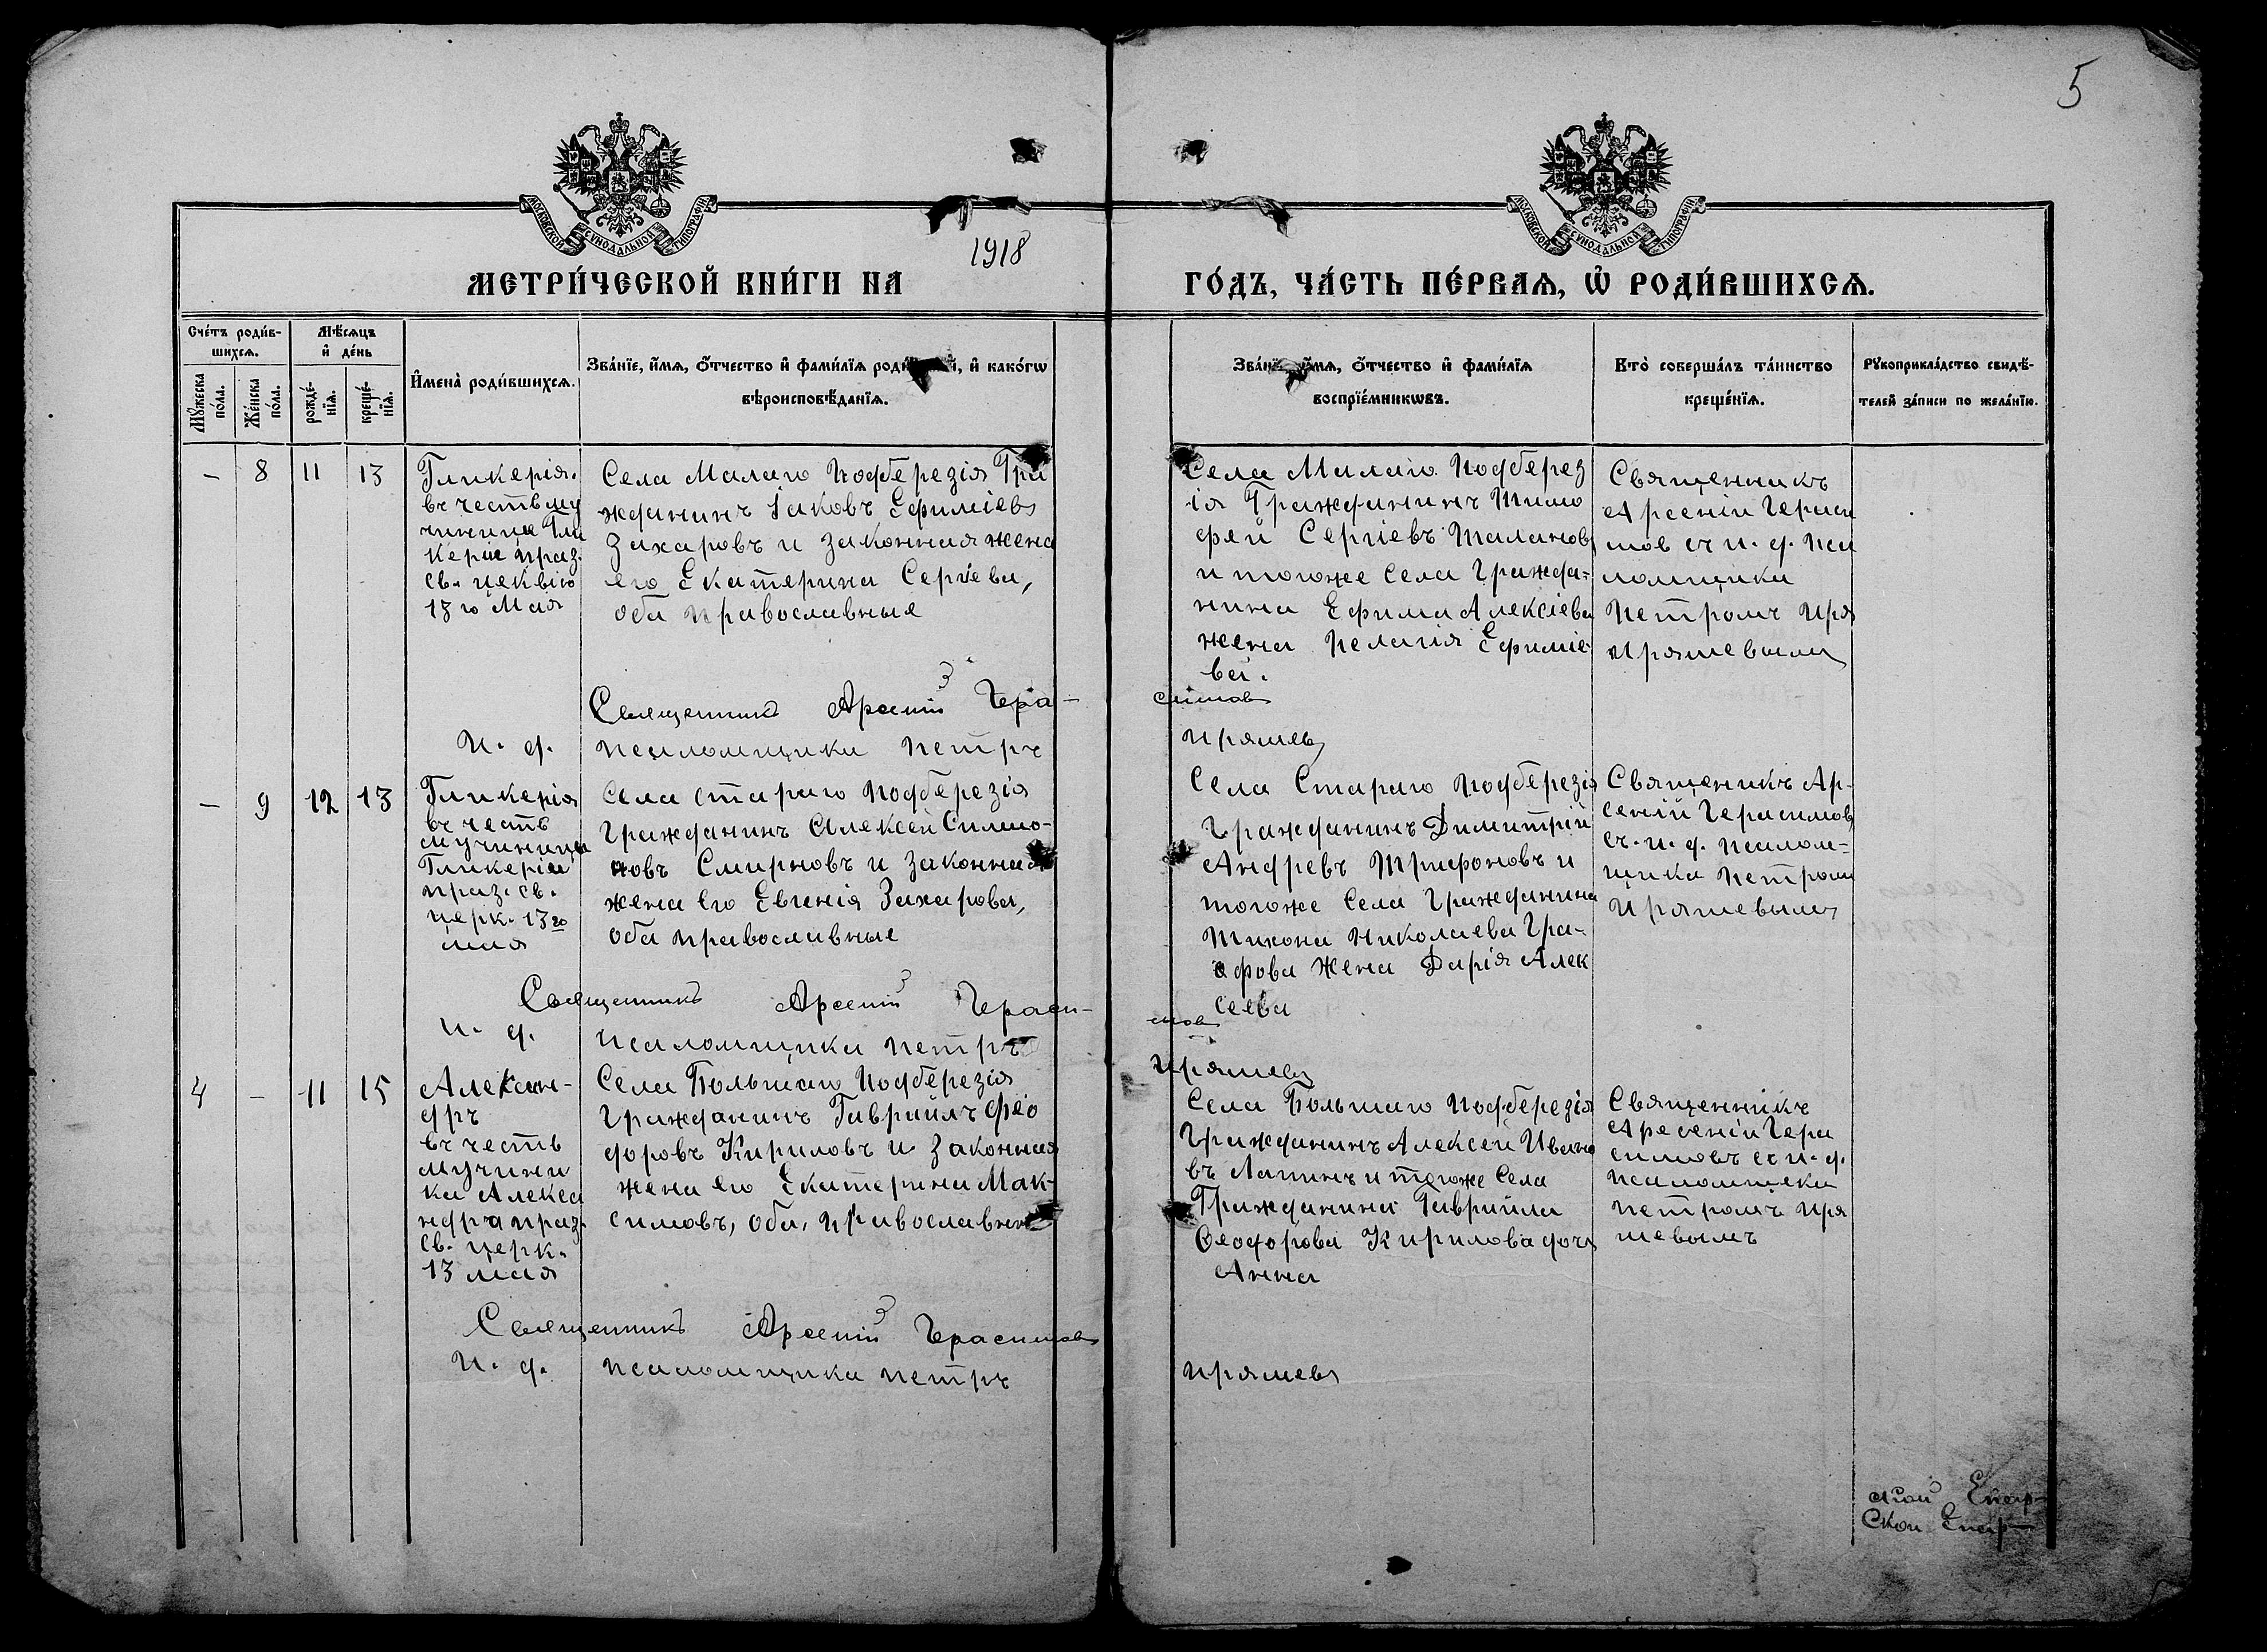 5
МОСКОВСКОЙ СѴНОДАЛЬНОЙ ТИПОГРАФІИ
МОСКОВСКОЙ СѴНОДАЛЬНОЙ ТИПОГРАФІИ
1918
МЕТРИ́ЧЕСКОЙ КНИ́ГИ НА
ГО́ДЪ, ЧА́СТЬ ПЕ́РВАѦ, Ѡ҆ РОДИ́ВШИХСѦ.
Сче́тъ роди́в-
шихсѧ.
Мѣ́сѧцъ
и҆ де́нь
Мꙋ́жеска
по́ла.
Же́нска
по́ла.
рожде́-
нїѧ.
креще́-
нїѧ.
И҆мена̀ роди́вшихсѧ.
Зва́нїе, и҆́мѧ, ѻ҆́тчество и҆ фами́лїѧ и҆ како́гѡ
вѣроисповѣ́данїѧ.
Зва́нїе, и҆́мѧ, ѻ҆́тчество и҆ фами́лїѧ
воспрїе́мникѡвъ.
Кто̀ соверша́лъ та́инство
креще́нїѧ.
Рꙋкоприкла́дство свидѣ́-
телей за́писи по жела́нїю.
– 8 11 13
Гликерія.
въ честь му
чиницы Гли
Керіе праз.
св. цеквію
13 го Мая
Села Малаго Подберезія Гра
жданинъ Іаковъ Ефиміевъ
Захаровъ и законная жена
его Екатерина Сергіева,
оба православные
Села Малаго Подберез
ія Гражданинъ Тимо
фей Сергіевъ Талановъ
и тогоже села Гражда-
нина Ефима Алексіева
жена Пелагія Ефиміе
ва.
Священникъ
Арсеній Гераси
мов съ и. д. пса
ломщика
Петромъ Пря
Священникъ Арсеній Гера-
симовъ
И. д. псаломщика Петръ
Пряшевъ
– 9 12 13
Гликерія
въ честь
мучиницы
Гликеріи
праз. св.
церк. 13го
мая
Села стараго Подберезія
Гражданинъ Алексей Симио-
новъ Смирновъ и законная
жена его Евгенія Захарова,
оба православные
Села Стараго Подберезія
Гражданинъ Димитрій
Андревъ Трифоновъ и
тогоже села Гражданина
Тихона Николаева Гра-
фова Жена Дарія Алек
сеева
Священикъ Ар-
сеній Герасимовъ
съ. и. д. псалом-
щика Петромъ
Пряшевымъ
Священникъ Арсеній Гераси-
мовъ
И. д. псаломщика Петръ
Пряшевъ
4 – 11 15
Алексан-
дръ
въ честь
мучини
ка Алекса
ндра праз.
св. церк.
13 мая
Села Большаго Подберезія
Гражданинъ Гавріилъ Фео
доровъ Кириловъ и законная
жена его Екатерина Мак-
симовъ, оба, православные
Села Большаго Подберезія
Гражданинъ Алексей Ивано
въ Лапинъ и тогоже села
Гражданина Гавріила
Феодорова Кирилова дочь
Анна
Священникъ
Арсеніи Гера
симовъ съ и. д.
псаломщика
Петромъ Пря
шевымъ
Священникъ Арсеній Герасимовъ
И. д. псаломщика Петръ
Пряшевъ
Епар-
ской Епар-